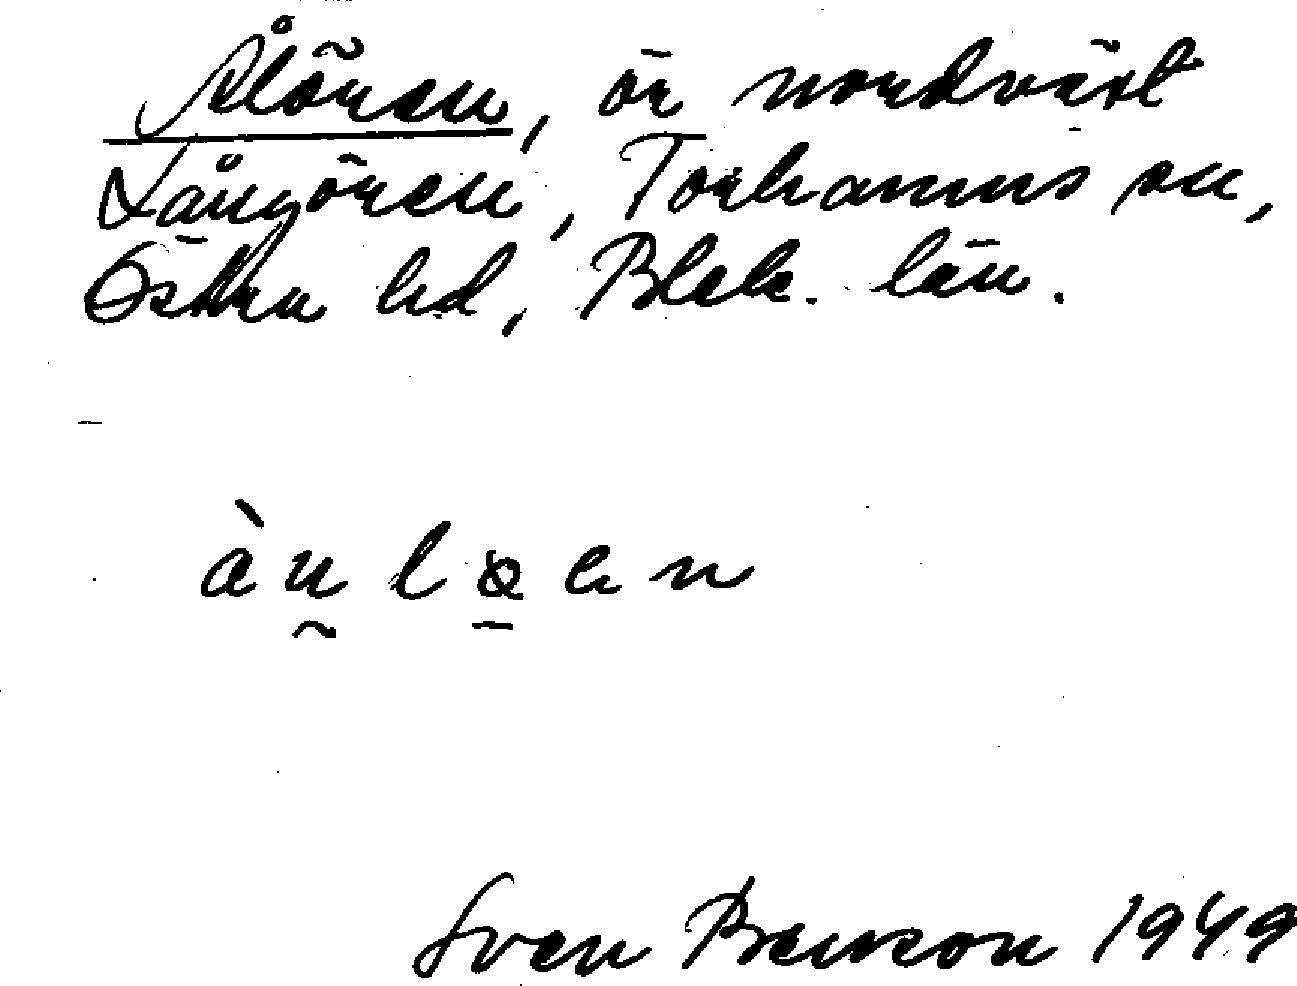 Ålören, ör nordväst
Långören, Torhamns sn,
Östra hd, Blek. län.
àṵlø̱en
Sven Benson 1949